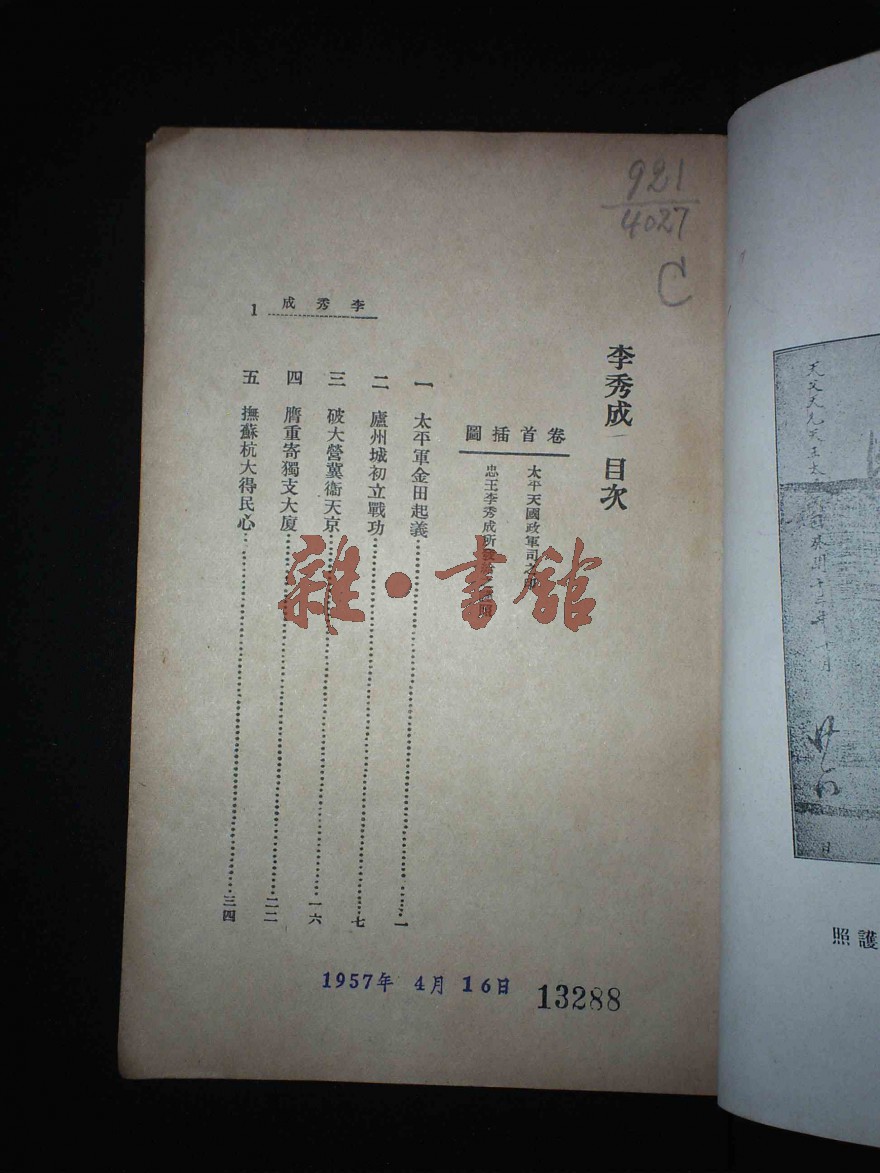 921
4027
C
李秀成 目次
卷首插圖
太平天國政軍司之印
忠王李秀成所
一 太平軍金田起義 一
二 廬州城初立戰功 七
三 破大營冀衞天京 一六
四 膺重寄獨支大廈 二二
五 撫蘇杭大得民心 三四
李秀成
1
1957年 4月 16日
13288
雜·書館
護照
天父天兄天王太